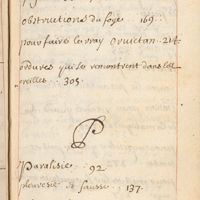 obstructions du foye . 169 .
pour faire le vray orvictan . 214
ordures qui se rencontrent dans les
oreilles . 305 .
P
Paralisie . 92
pleuresie et fausse . 137 .